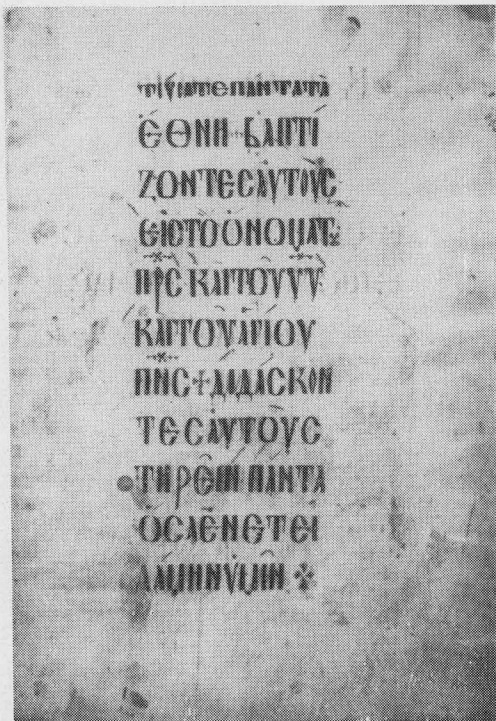 ΤΕΥϹΑΤΕΠΑΝΤΑΤΑ
ΕΘΝΗ ΒΑΠΤΙ
ΖΟΝΤΕϹΑΥΤΟΥϹ
ΕΙϹΤΟΟΝΟΜΑΤȣ
ΠΡϹ ΚΑΙΤΟΥΥΥ
ΚΑΙΤΟΥΑΓΙΟΥ
ΠΝϹ+ΔΙΔΑϹΚΟΝ
ΤΕϹΑΥΤΟΥϹ
ΤΗΡΕΙΝΠΑΝΤΑ
ΟϹΑΕΝΕΤΕΙ
ΛΑΜΗΝΥΜΙΝ ※